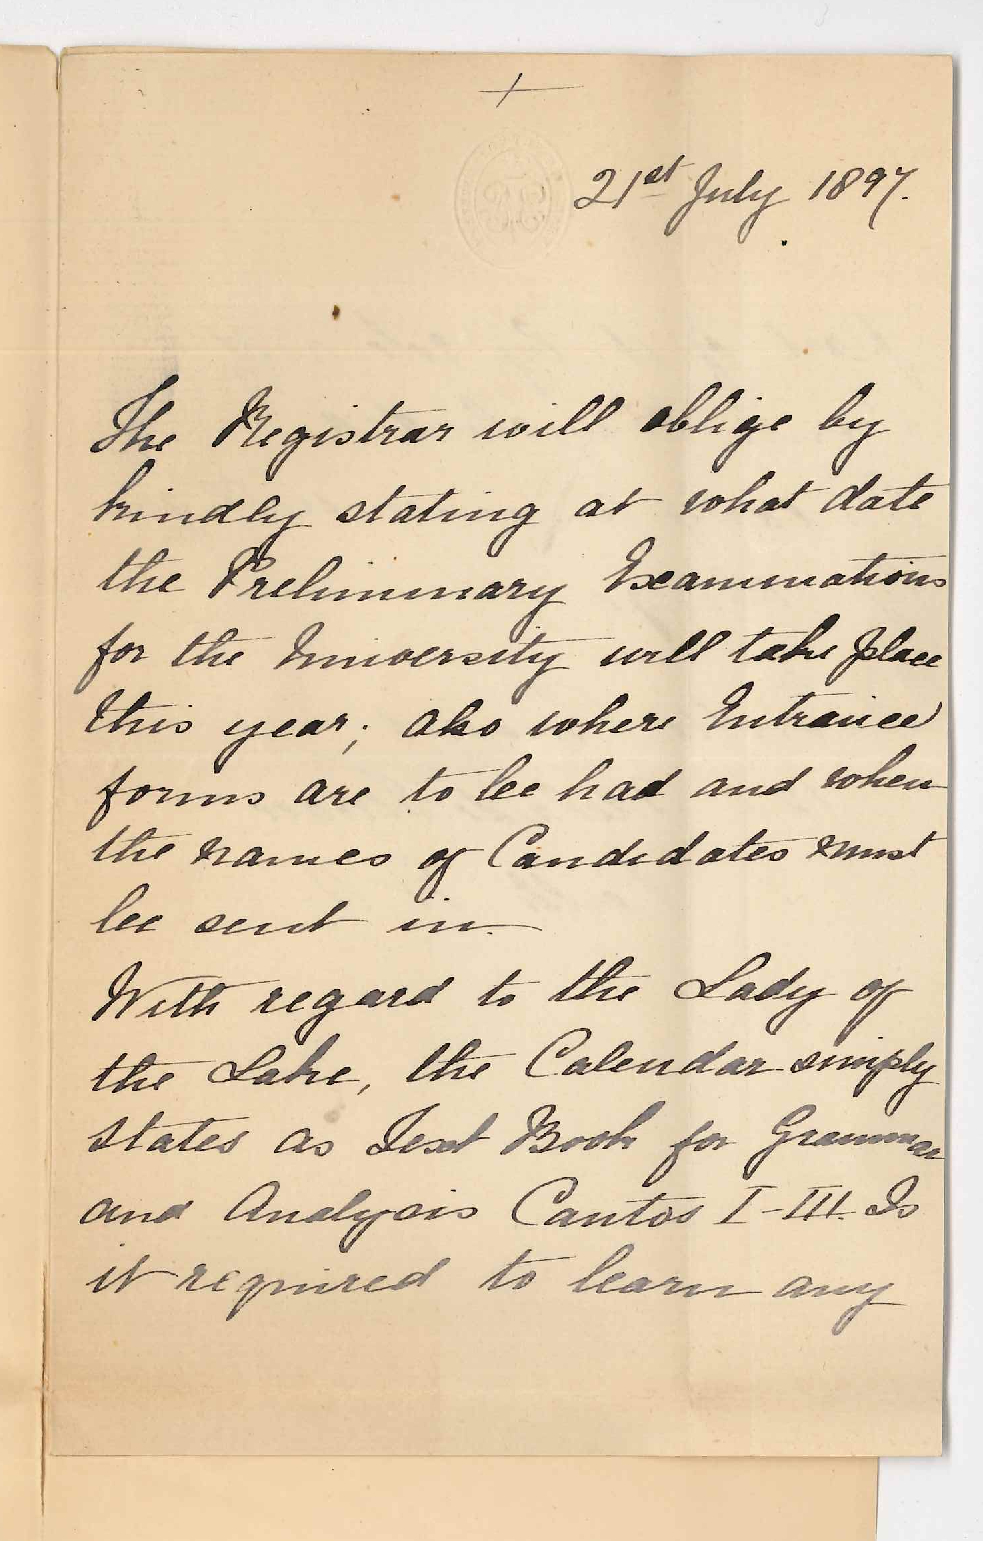 21st July 1897.
The Registrar will oblige by
kindly stating at what date
the Preliminary Examinations
for the University will take place
this year; also where Entrance
forms are to be had and when
the names of Candidates must
be sent in.
With regard to the Lady of
the Lake, the Calendar simply
states as Text Book for Grammar
and Analysis Cantos I-III. Is
it required to learn any